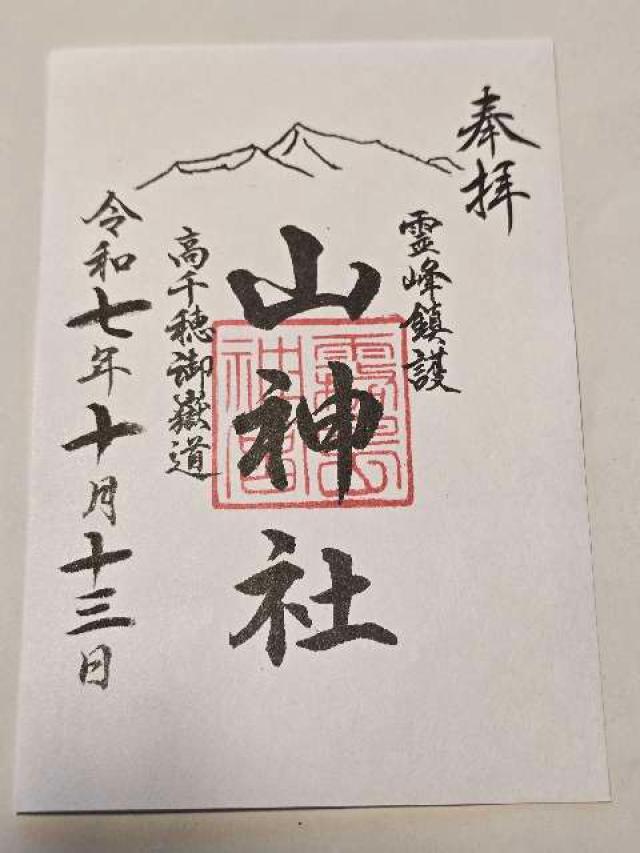 奉拝
霊峰鎮護
山神社
霧島神宮
高千穂御嶽道
令和七年十月十三日